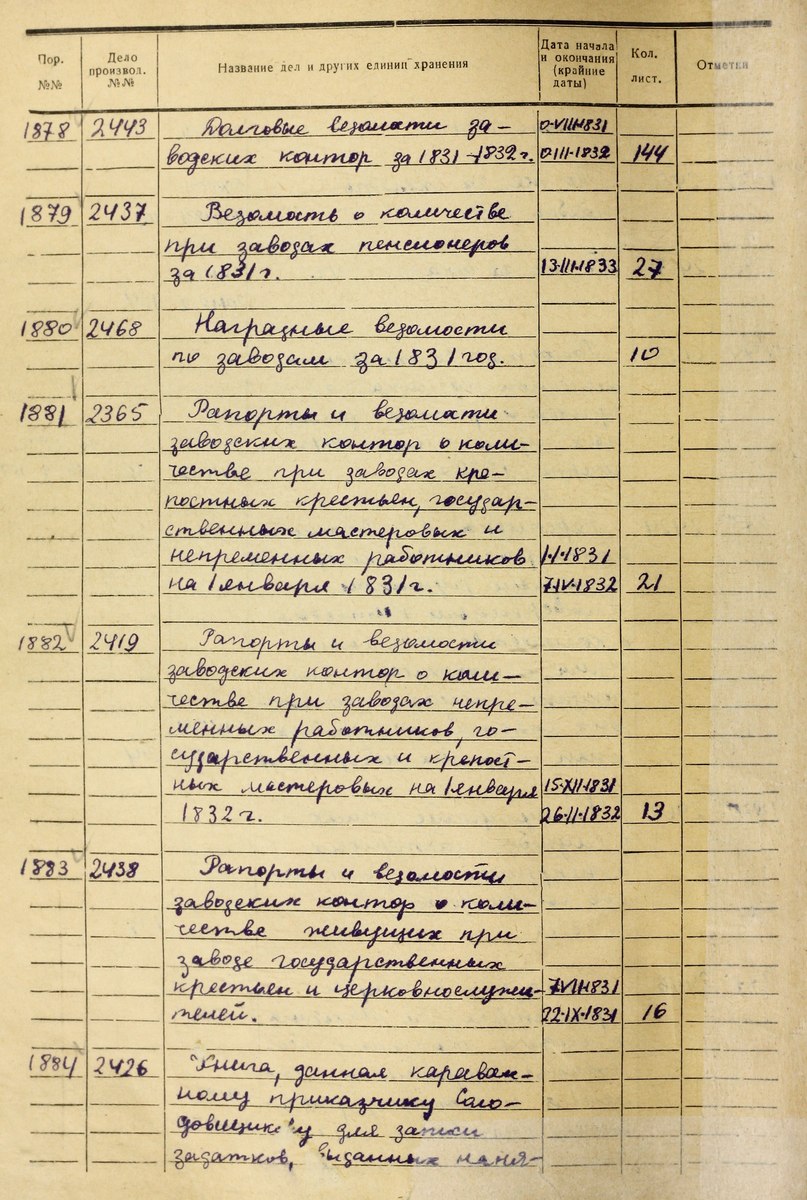 Пор. №№ Дело производ. №№ Название дел и других единиц хранения Дата начала и окончания (крайние даты) Кол. лист. Отметки
1878 2443 Долговые ведомасти за-
водских контор за 1831-1832 г. 0-III-1832 144
1879 2437 Ведомость о количестве
при заводах пенсионеров
за 1831 г. 27
1880 2468 Наградные ведомости
по заводам за 1831 год. 10
1881 2365 Рапорты и ведомасти
заводских контор о коли-
честве при заводах кре-
постных крестьен, государ-
ственных мастеровых и
непременных работников 1-I-1831
на 1 января 1831 г. 7-IV-1832 21
1882 2419 Рапорты и ведомости
заводских контор о коли-
честве при заводах непре-
менных работников, го-
сударственных и крепост-
ных мастеровых на 1 января 15-XII-1831
1832 г. 26-II-1832 13
1883 2438 Рапорты и ведомости
заводских контор о коли-
честве живущих при
заводе государственных
крестьен и церковнослужи-
телей. 22-IX-1831 16
1884 2426 Книга, данная караван-
ному приказчику Соло-
довщикову для записи
задатков, выданных наня-